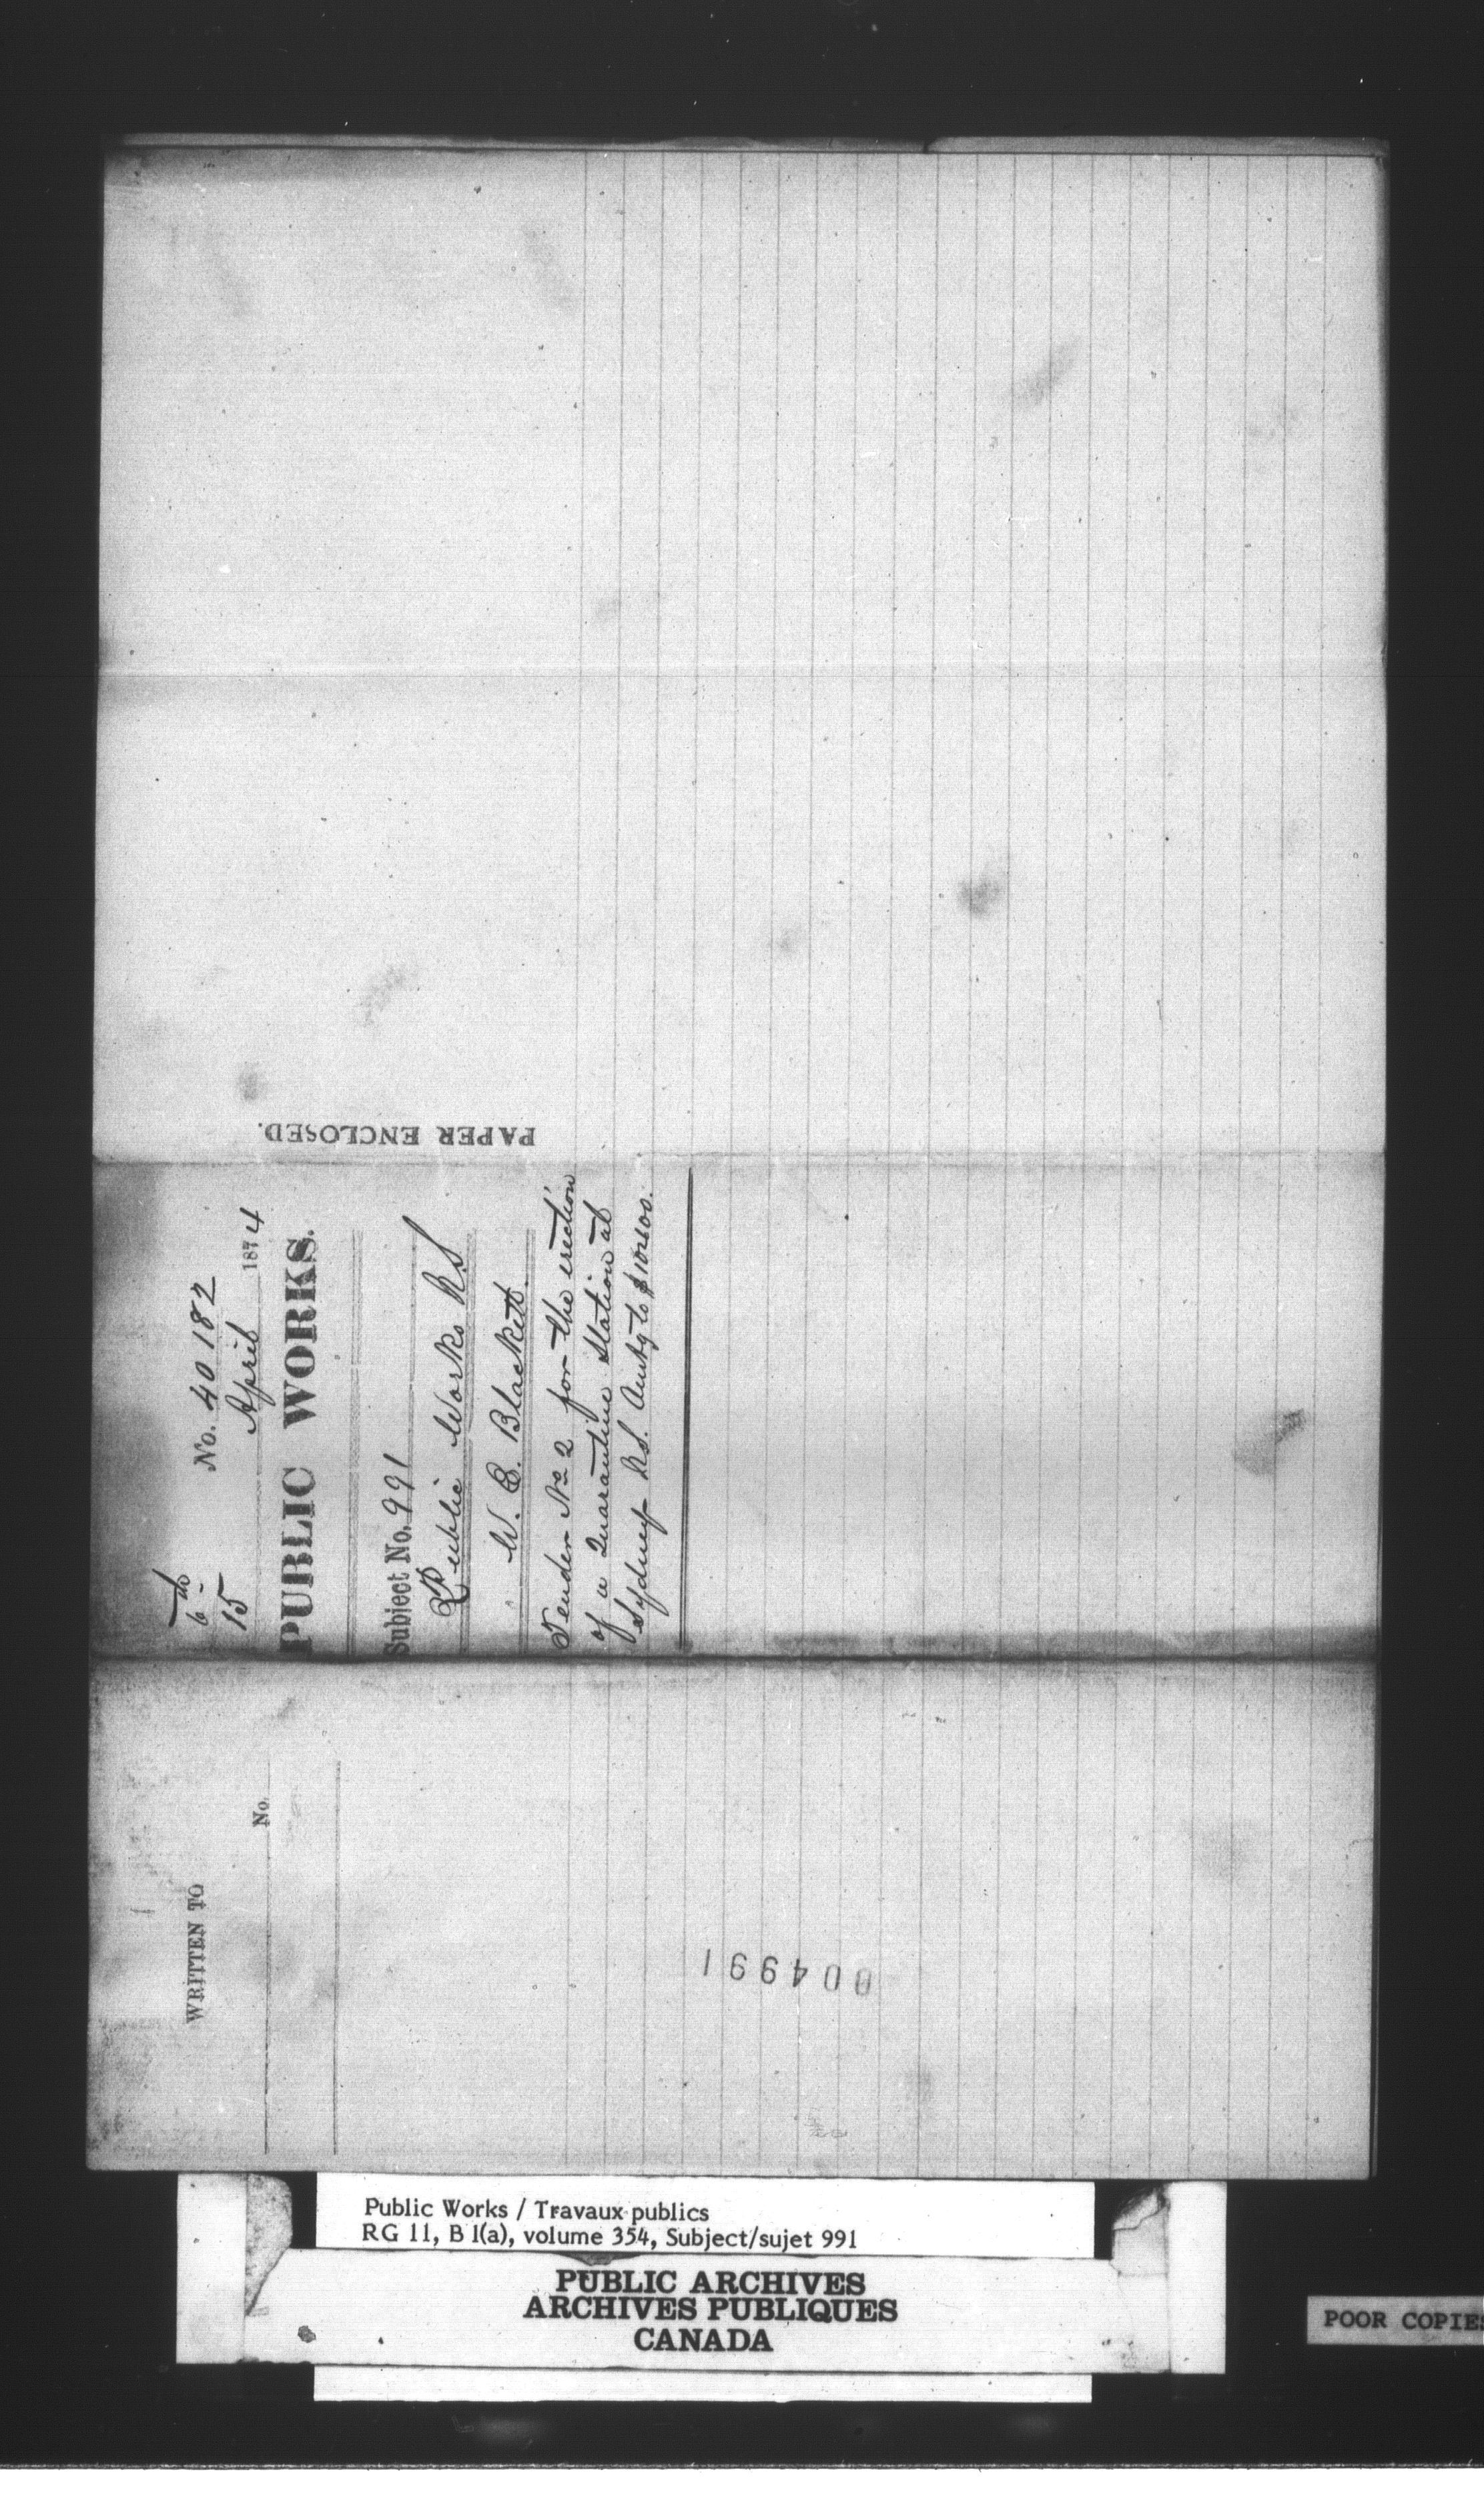 6th
No. 40182
15 April 1874
PUBLIC WORKS.
Subject No. 991
Public Works N.S
W. C. Blackett.
Tender No 2 for the erection
of a Quarantine Station at
Sydney N.S. to
PAPER ENCLOSED.
WRITTEN TO
No.
004991
Public Works / Travaux publics
RG 11, B 1(a), volume 354, Subject/sujet 991
PUBLIC ARCHIVES
ARCHIVES PUBLIQUES
CANADA
POOR COPIES